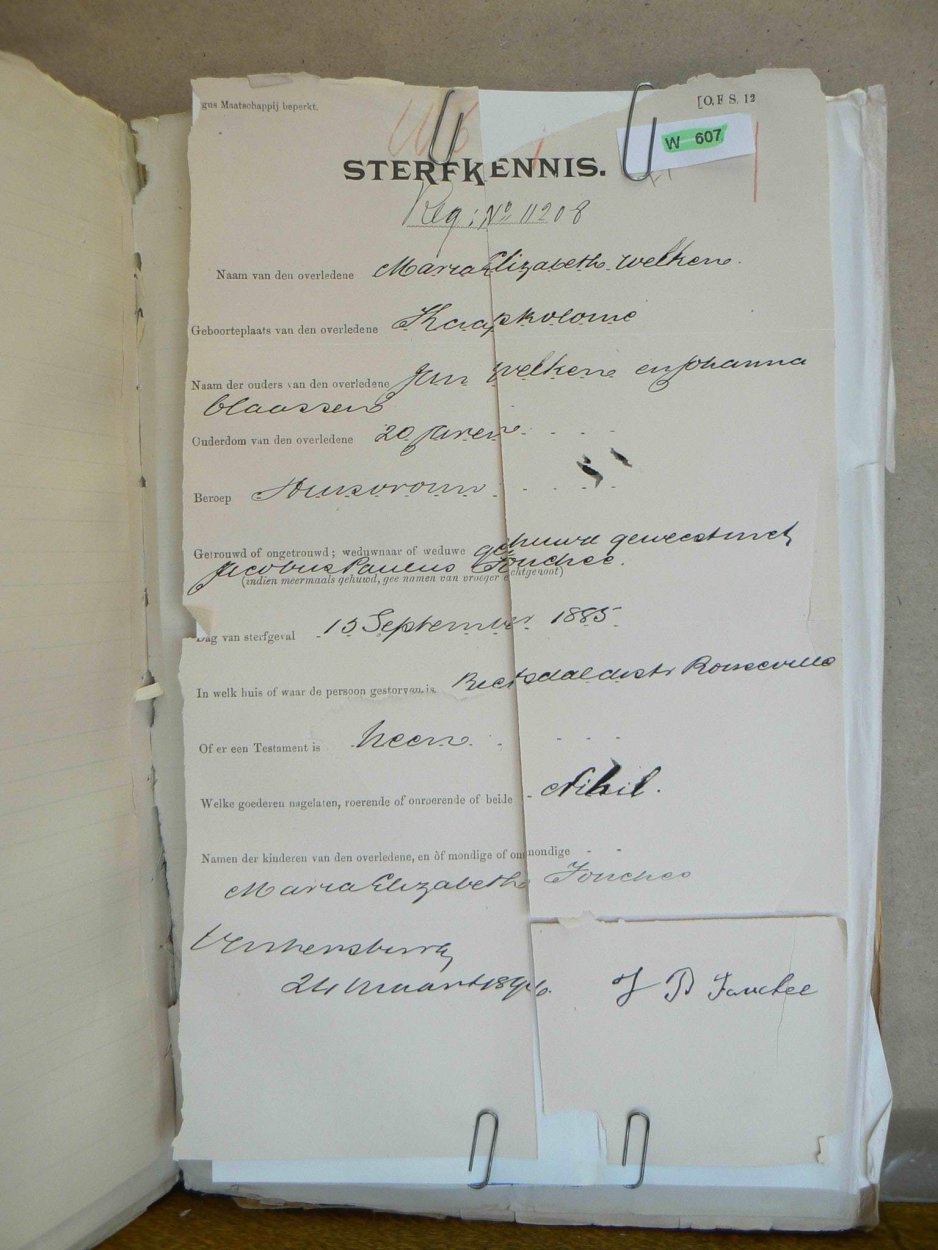 gus Maatschappij beperkt.
[O.F.S. 12
W 607
STERFKENNIS.
Reg: No 11208
Naam van den overledene Maria Elizabeth Welkene.
Geboorteplaats van den overledene Kaapkolonie
Naam der ouders van den overledene Jan Welkene en Johanna
Claassens
Ouderdom van den overledene 20 Jaren
Beroep Huisvrouw
Getrouwd of ongetrouwd; weduwnaar of weduwe gehuwd geweest met
Jacobus Paulus Fouchee.
(indien meermaals gehuwd, gee namen van vroeger echtgenoot)
Dag van sterfgeval 15 September 1885
In welk huis of waar de persoon gestorven is. Rietsdal distr Rouxville
Of er een Testament is Neen
Welke goederen nagelaten, roerende of onroerende of beide Nihil.
Namen der kinderen van den overledene, en òf mondige of onmondige
Maria Elizabeth Fouchee
Ventersburg
24 Maart 1896.
J P Fouchee